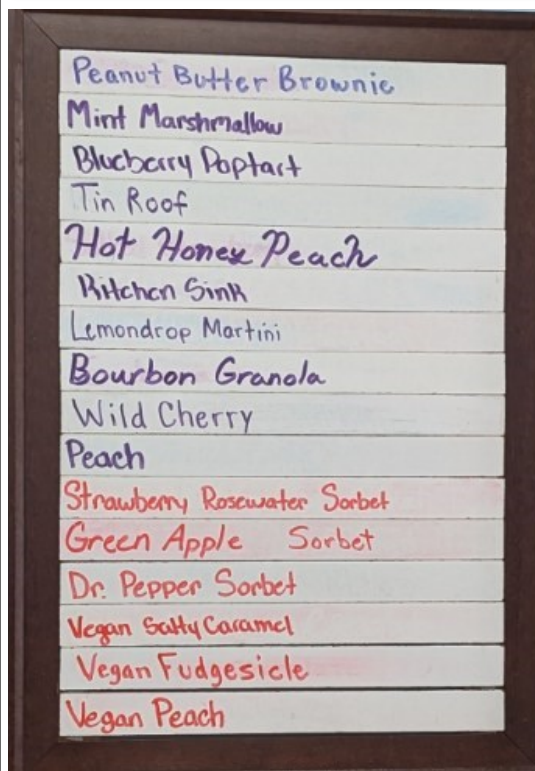 Peanut Butter Brownie
Mint Marshmallow
Blueberry Poptart
Tin Roof
Hot Honey Peach
Kitchen Sink
Lemondrop Martini
Bourbon Granola
Wild Cherry
Peach
Strawberry Rosewater Sorbet
Green Apple Sorbet
Dr. Pepper Sorbet
Vegan Salty Caramel
Vegan Fudgesicle
Vegan Peach